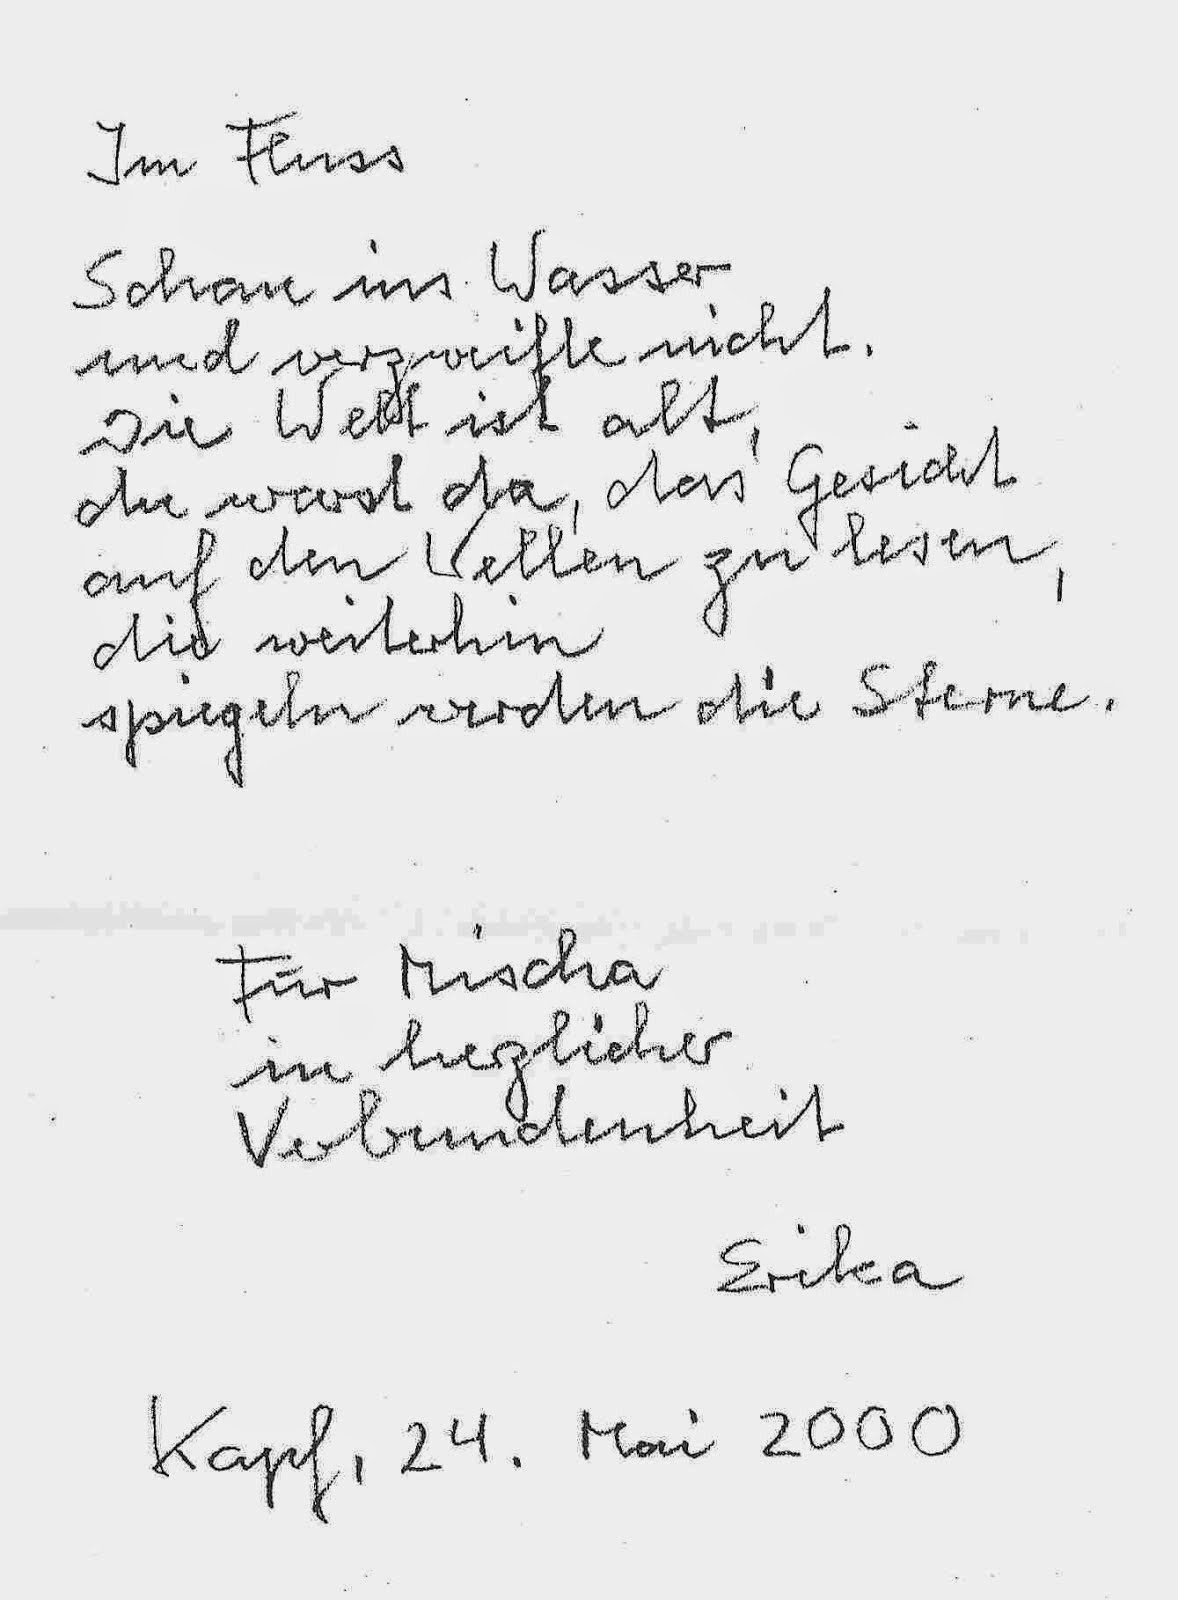 Im Fluss
Schau ins Wasser
und verzweifle nicht.
Die Welt ist alt,
du warst da, das Gesicht
auf den Wellen zu lesen,
die weiterhin
spiegeln werden die Sterne.
Für Mischa
in herzlicher
Verbundenheit
Erika
Kapf, 24. Mai 2000